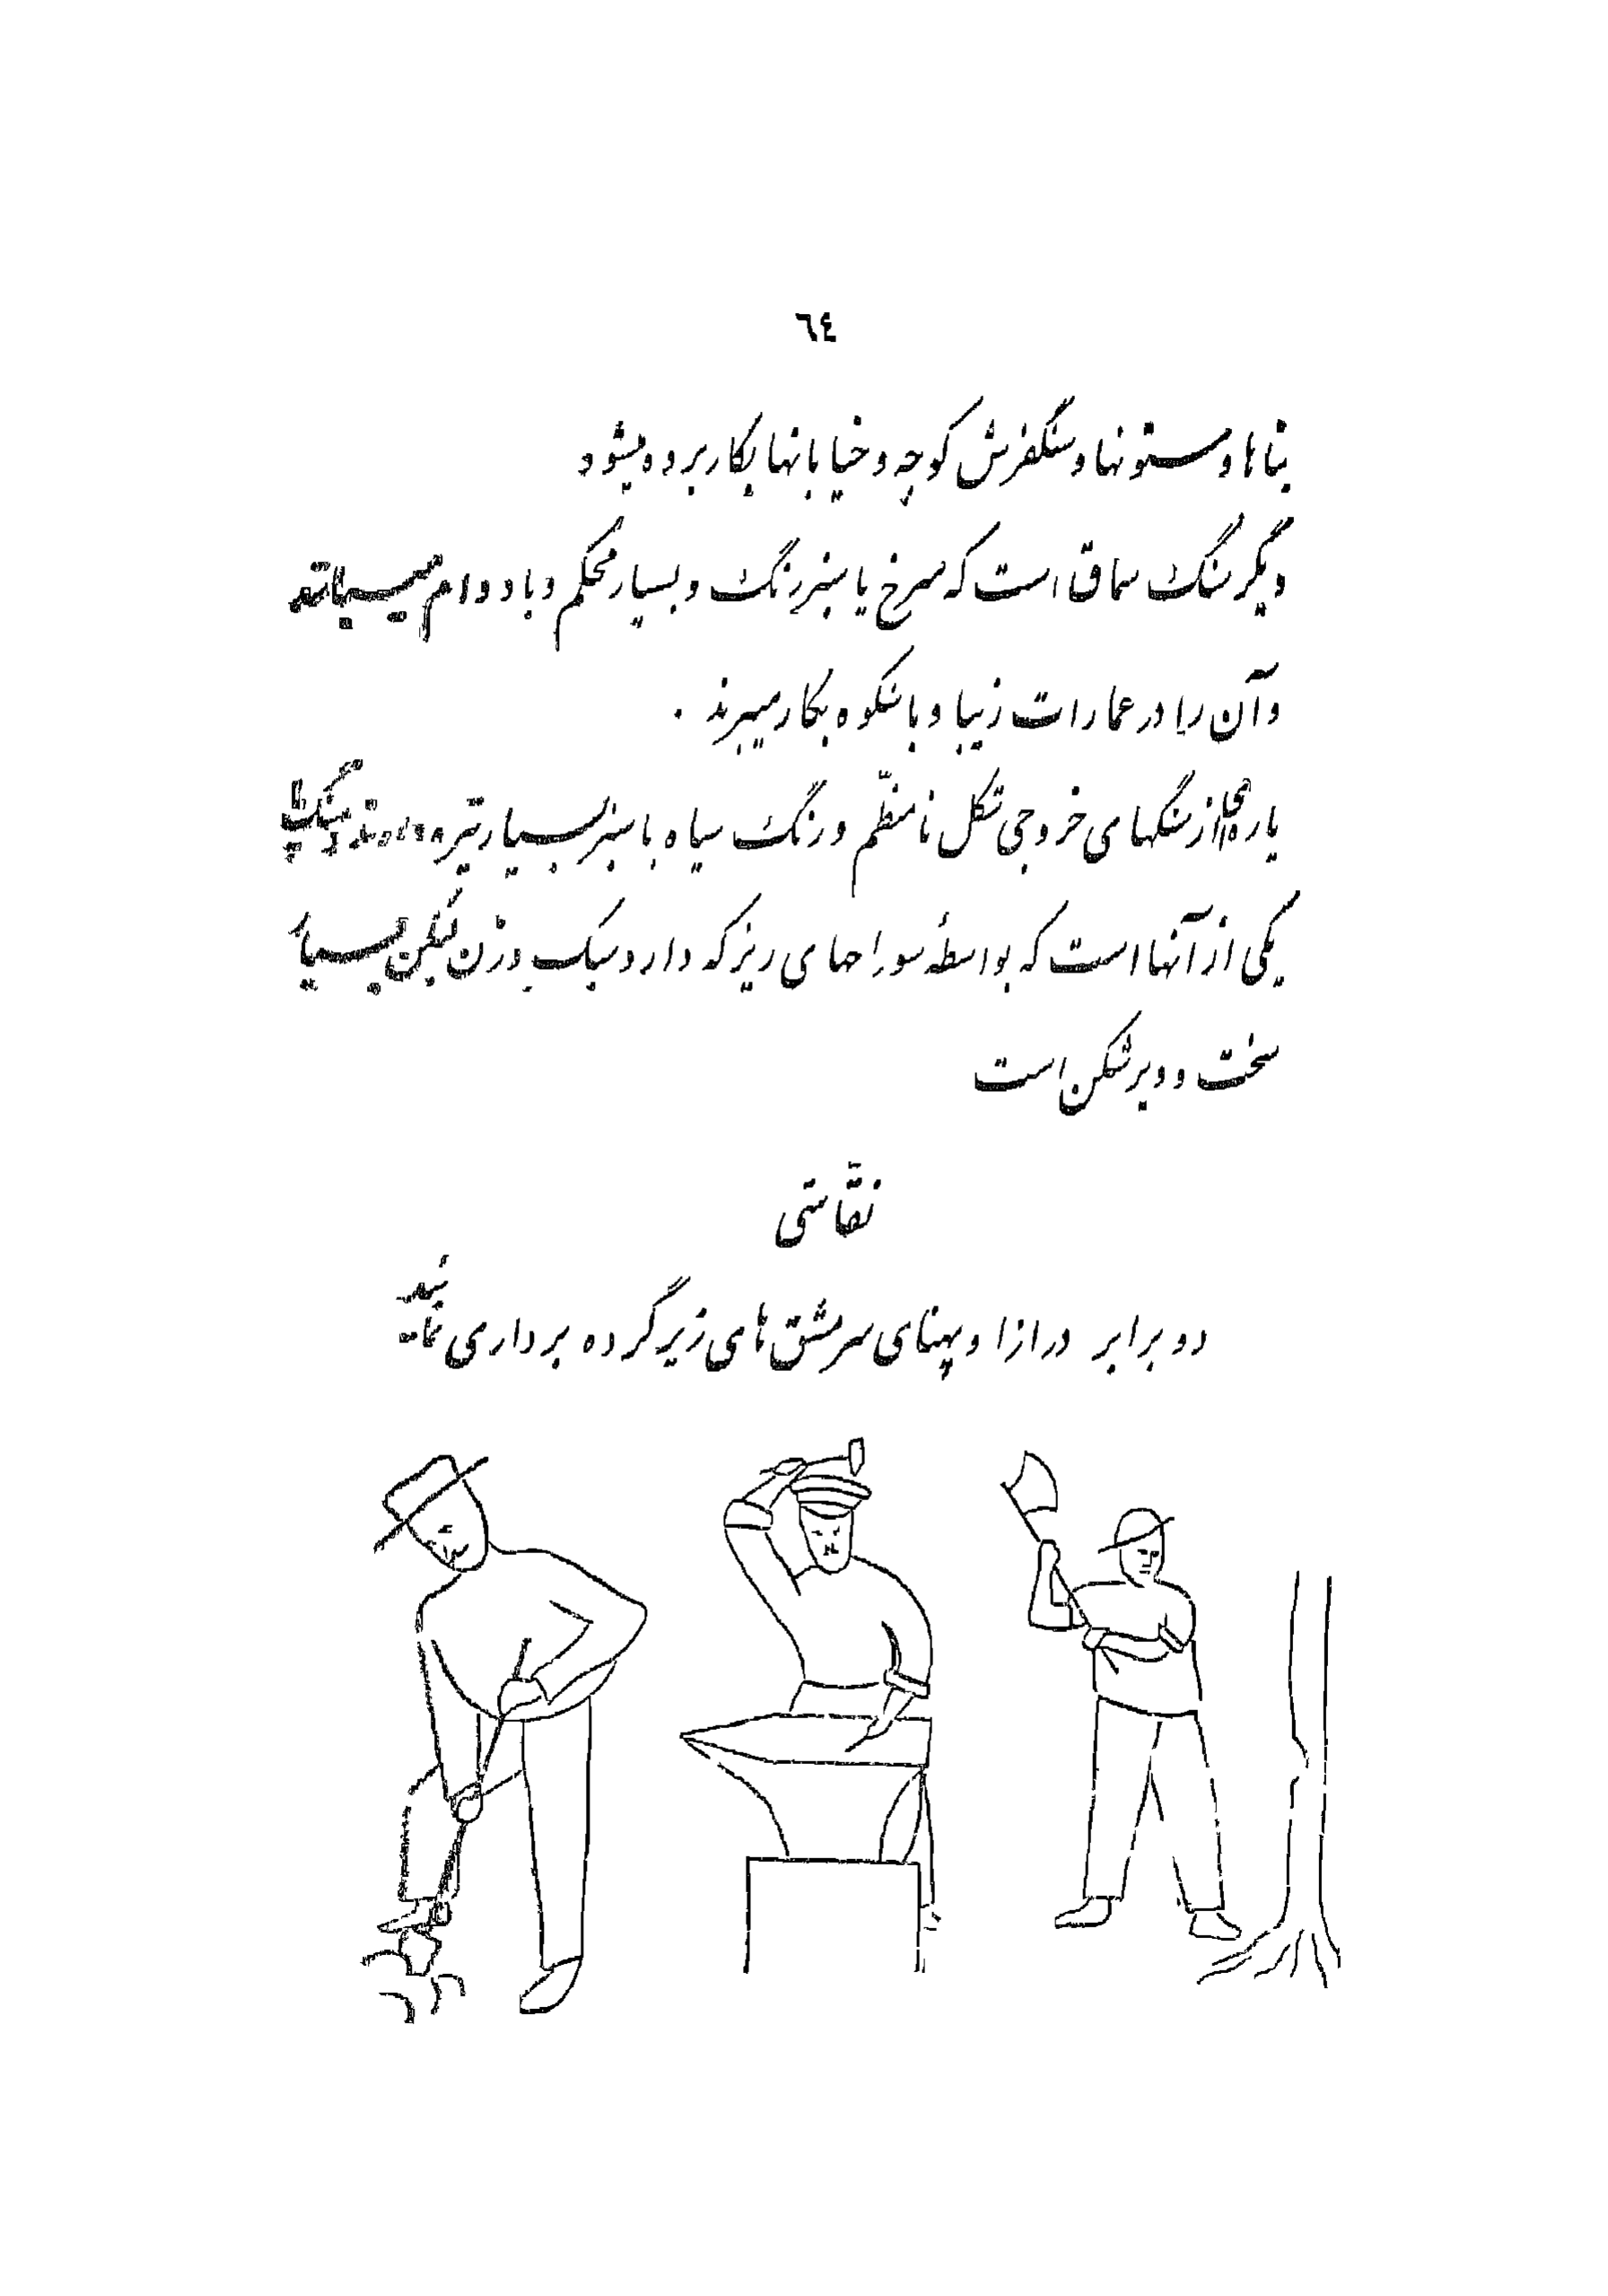 ٦٤
بناها و ستونها و سنگفرش کوچه و خیابانها بکار برده میشود
دیگر سنگ سماق است که سرخ یا سبز رنگ و بسیار محکم و با دوام میباشد
و آن را در عمارات زیبا و باشکوه بکار میبرند .
پاره‌ای از سنگهای خروجی شکل نامنظّم و رنگ سیاه یا سبز بسیار تیره دارند سنگ پا
یکی از آنها است که بواسطهٔ سوراخهای ریز که دارد سبک وزن لیکن بسیار
سخت و دیر شکن است
نقّاشی
دو برابر درازا و پهنای سرمشق های زیر گرده برداری نمائید